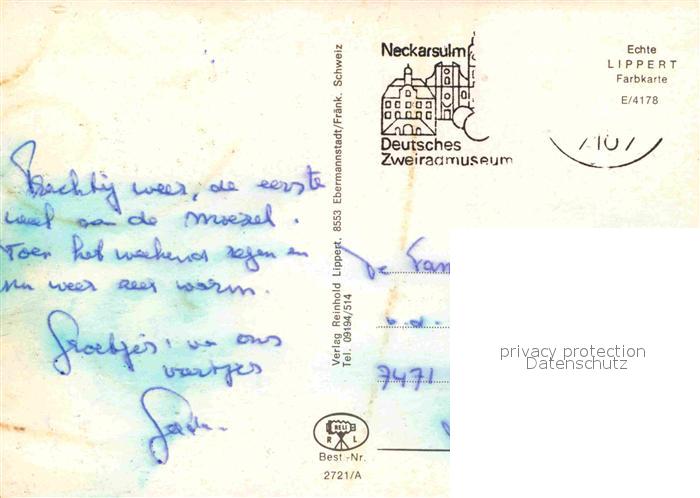 Prachtig weer, de eerste
week aan de moezel.
Toen het weekend regen en
nu weer zeer warm.
Groetjes, v
ons
Verlag Reinhold Lippert, 8553 Ebermannstadt/Fränk. Schweiz
Tel. 09194/514
Neckarsulm
Deutsches
Zweiradmuseum
Echte
LIPPERT
Farbkarte
E/4178
7107
De Fam
7471
privacy protection
Datenschutz
RELI
R L
Best.-Nr.
2721/A